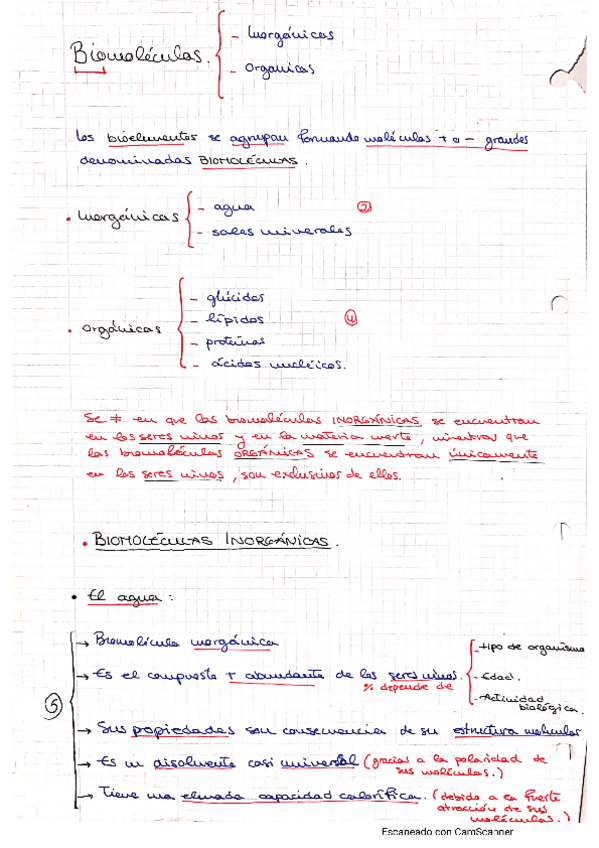 Biomoléculas.
- Inorgánicas
- Orgánicas
Los bioelementos se agrupan formando moléculas + o - grandes
denominadas BIOMOLÉCULAS.
• Inorgánicas
- agua
- sales minerales
②
• Orgánicas
- glúcidos
- lípidos
- proteínas
- ácidos nucléicos.
④
Se ≠ en que las biomoléculas INORGÁNICAS se encuentran
en los seres vivos y en la materia inerte, mientras que
las biomoléculas ORGÁNICAS se encuentran únicamente
en los seres vivos, son exclusivos de ellos.
• BIOMOLÉCULAS INORGÁNICAS.
• El agua:
⑤
→ Biomolécula inorgánica
→ Es el compuesto + abundante de los seres vivos.
% depende de
- tipo de organismo
- Edad.
- Actividad
biológica.
→ Sus propiedades son consecuencia de su estructura molecular
→ Es un disolvente casi universal (gracias a la polaridad de
sus moléculas.)
→ Tiene una elevada capacidad calorífica. (debido a la fuerte
atracción de sus
moléculas.)
Escaneado con CamScanner